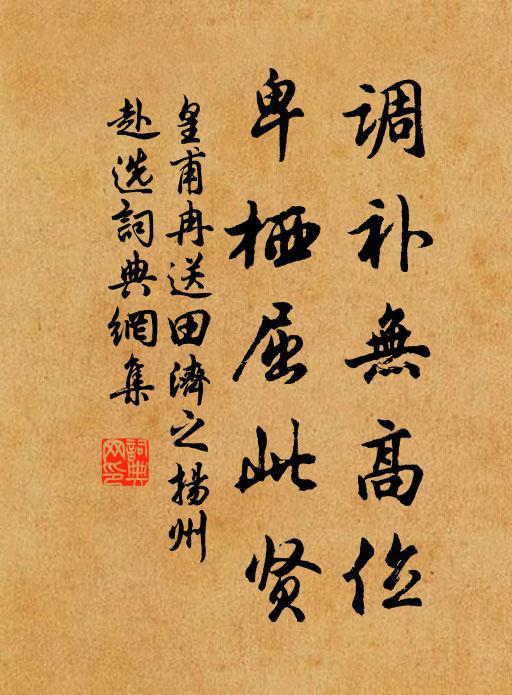 调补無高位
卑栖屈此贤
皇甫冉送田濟之揚州
赴选詞典網集
詞典网印